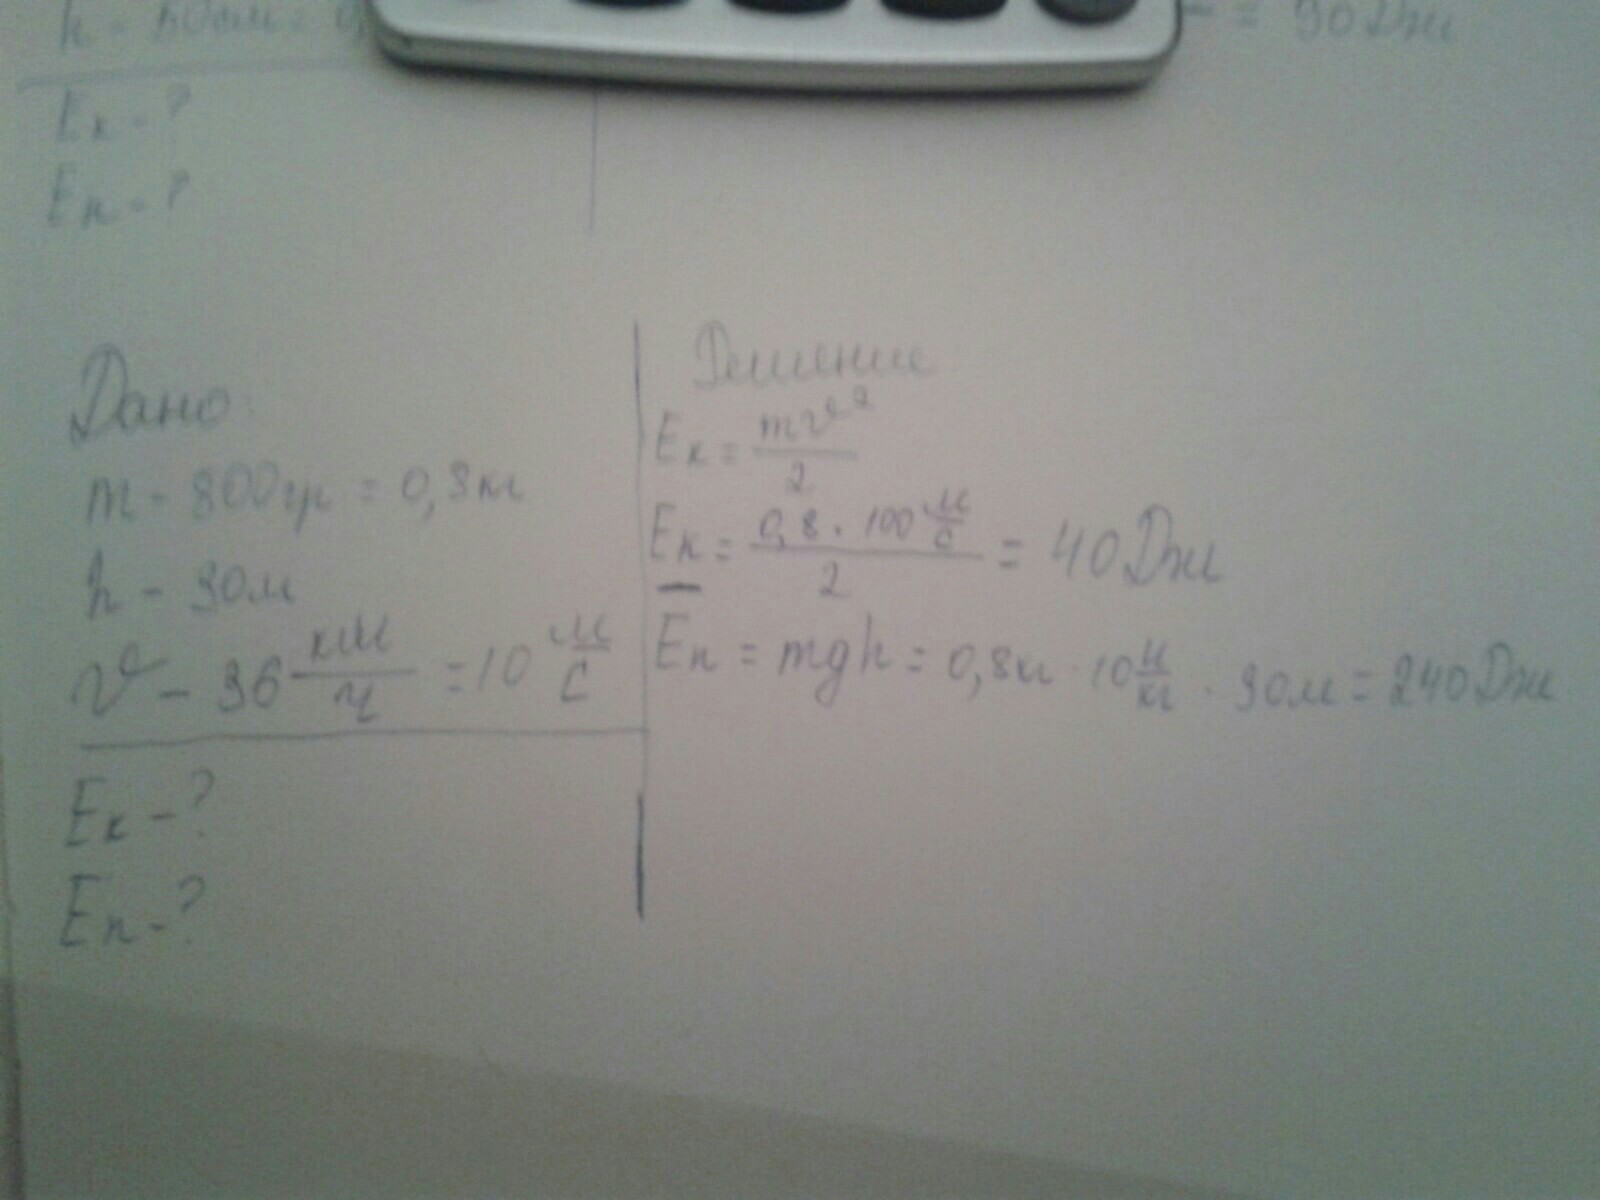 h - 50см = 0,
= 90 Дж
Eк - ?
Eп - ?
Дано:
m - 800гр = 0,8кг
h - 30м
v - 36 км/ч = 10 м/с
Eк - ?
Eп - ?
Решение
Eк = mv²/2
Eк = 0,8 · 100 м/с / 2 = 40 Дж
Eп = mgh = 0,8кг · 10 Н/кг · 30м = 240 Дж